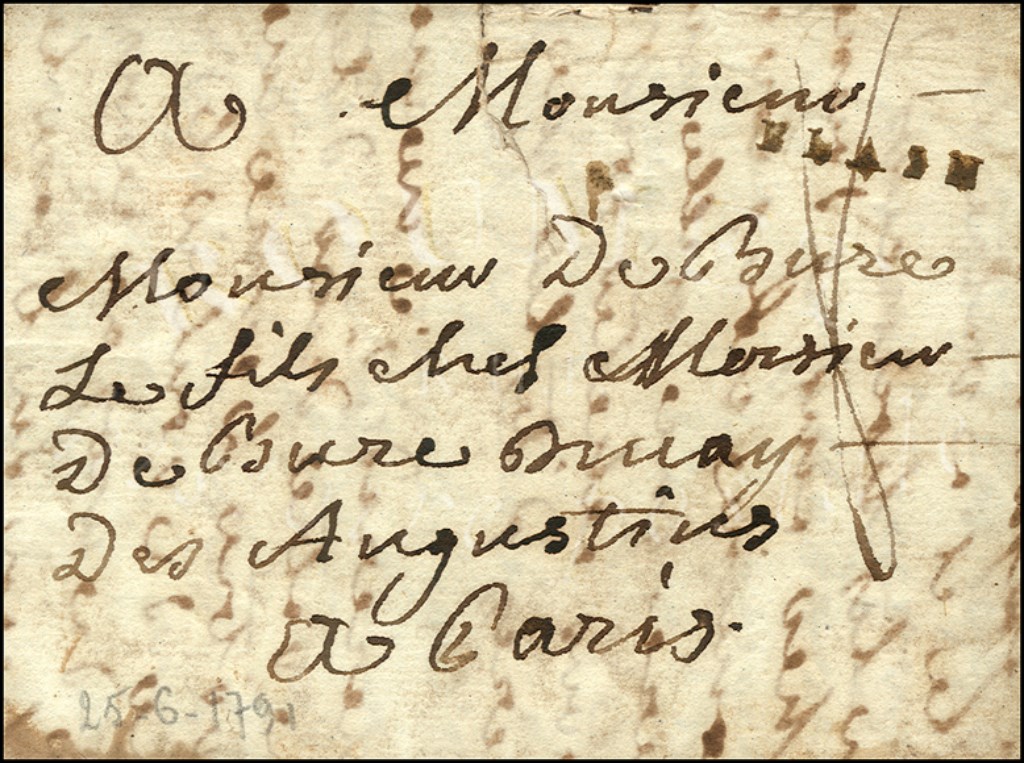 A Monsieur
FLASH
Monsieur De Bure
Le fils chez Monsieur
De Bure
Des Augustins
a Paris.
25-6-1791